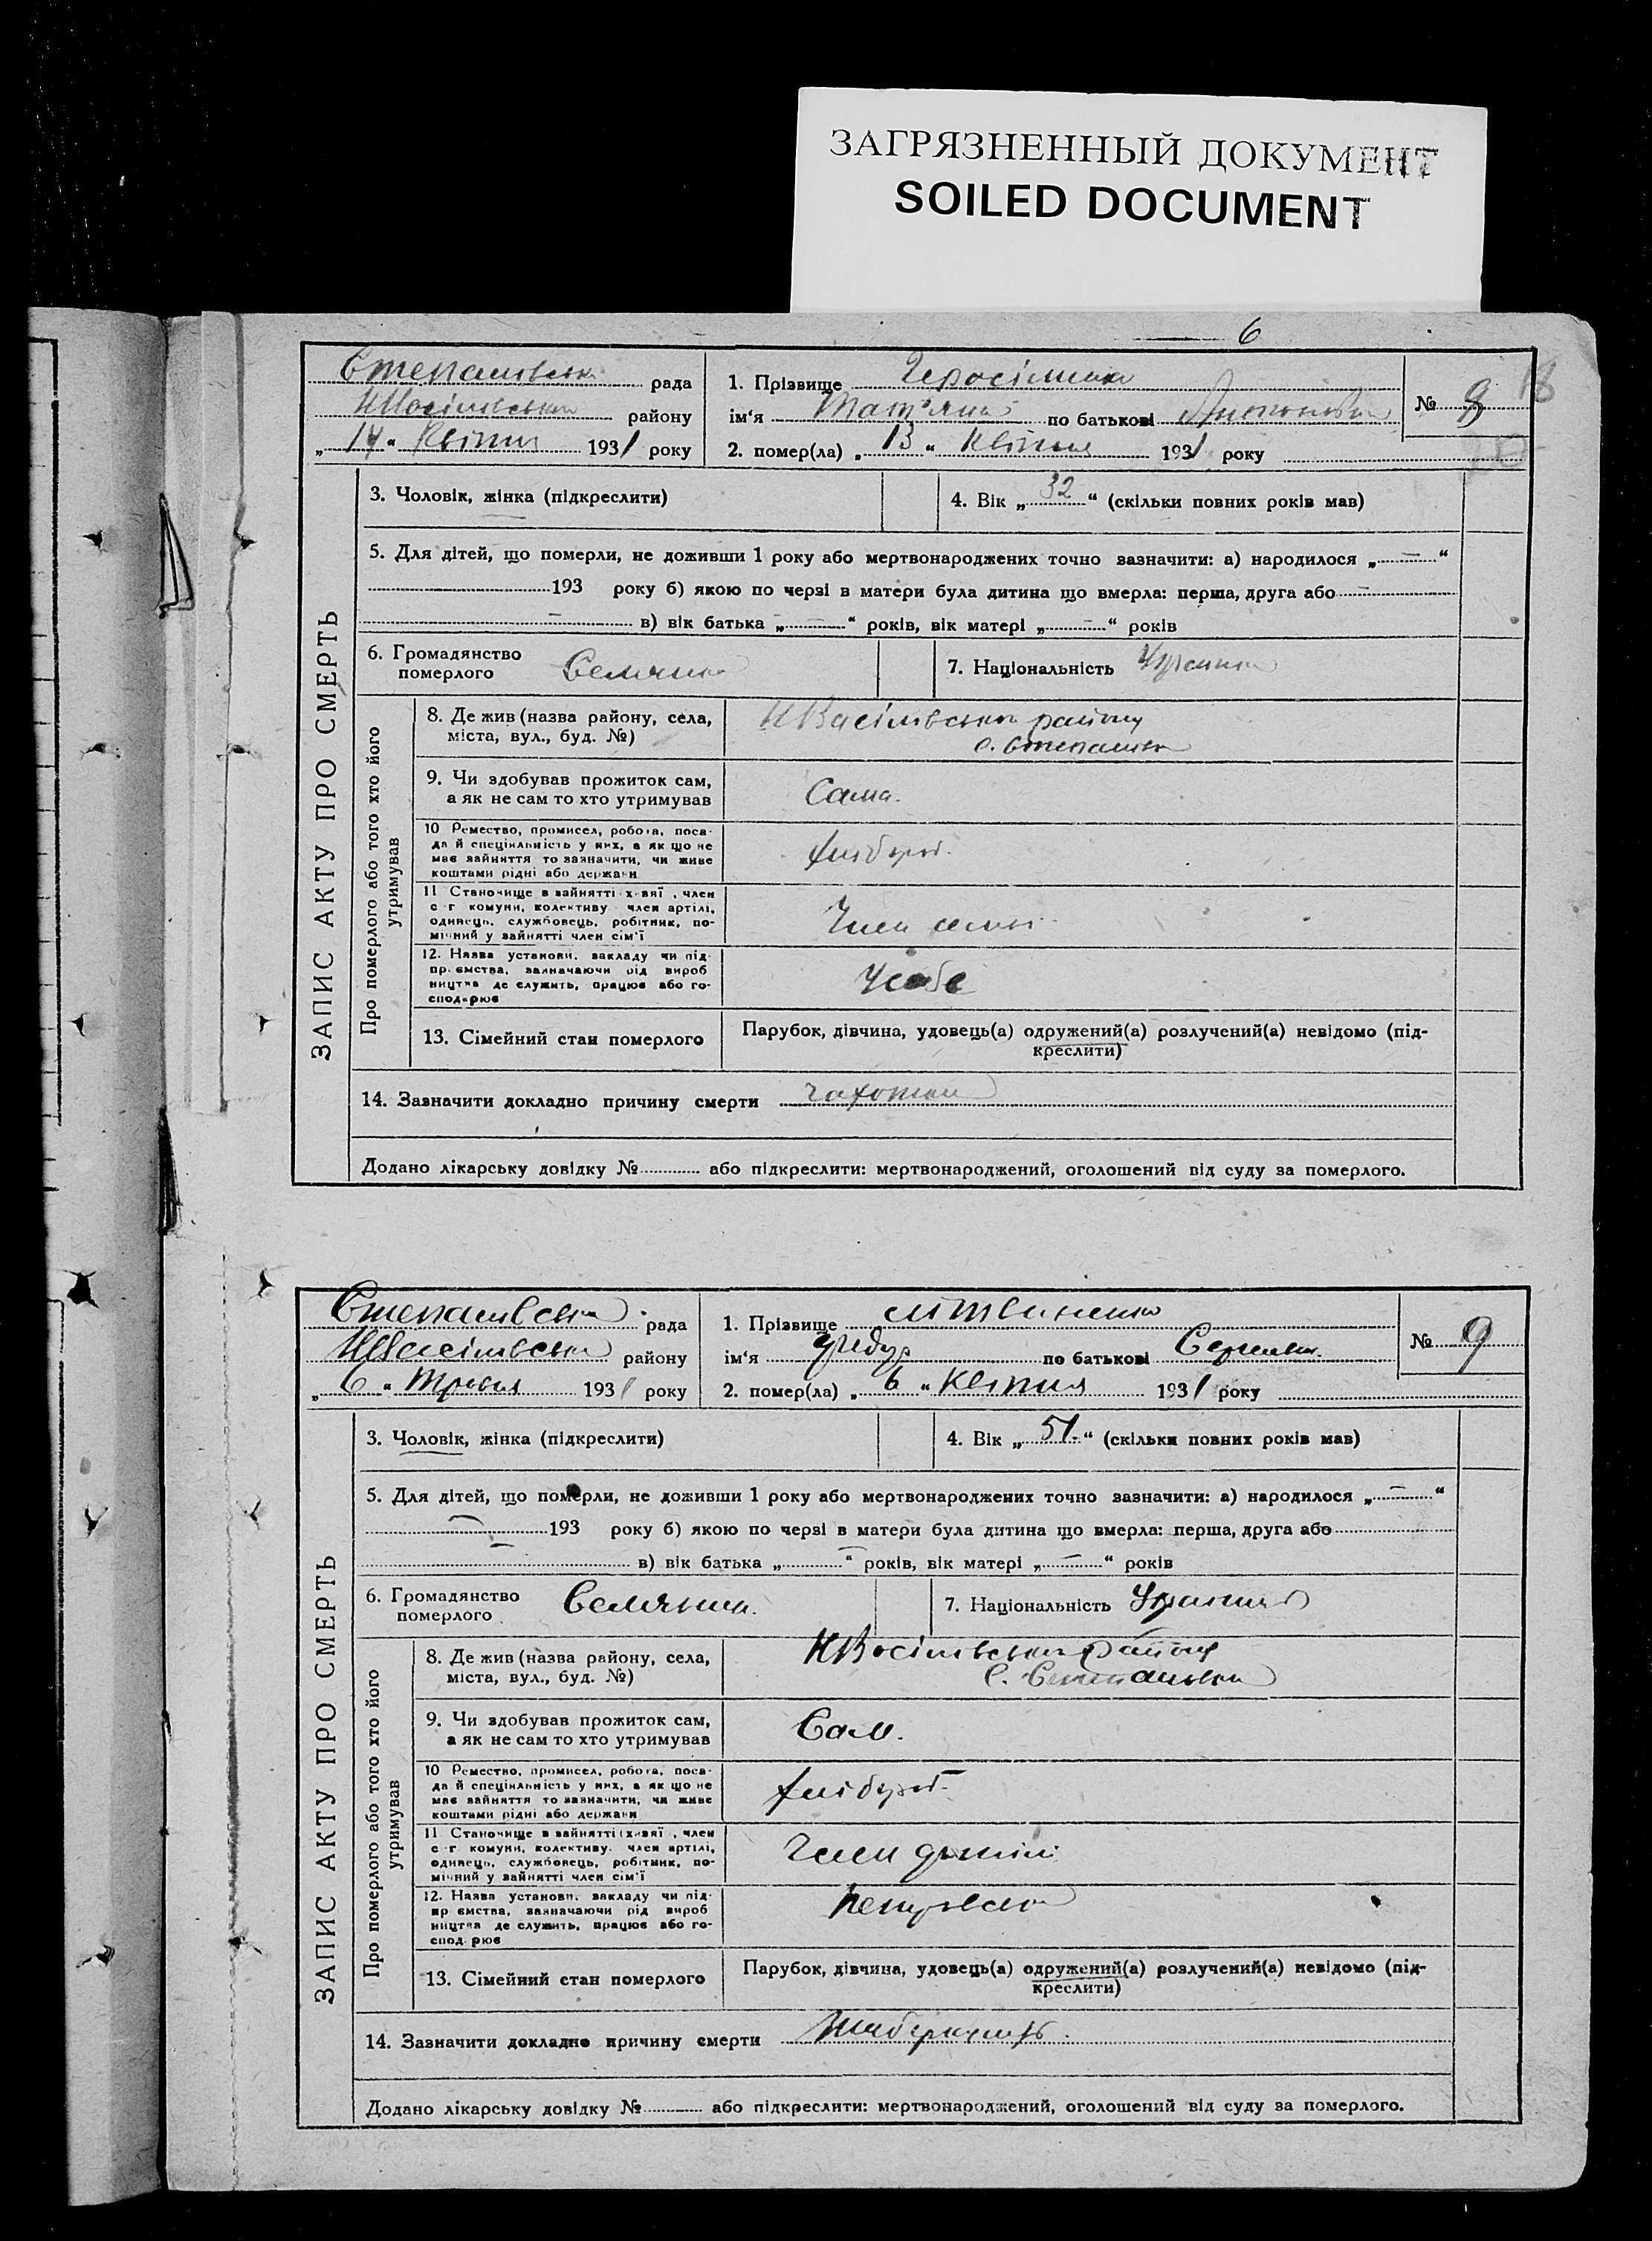 ЗАГРЯЗНЕННЫЙ ДОКУМЕНТ
SOILED DOCUMENT
6
ЗАПИС АКТУ ПРО СМЕРТЬ
рада
району
„ 14 “ Квітня 1931 року
1. Прізвище
ім‘я Тат'яна по батькові
2. помер(ла) „ 13 “ Квітня 1931 року
№ 8
3. Чоловік, жінка (підкреслити)
4. Вік „ 32 “ (скільки повних років мав)
5. Для дітей, що померли, не доживши 1 року або мертвонароджених точно зазначити: а) народилося „ — “
193 року б) якою по черзі в матери була дитина що вмерла: перша, друга або —
— в) вік батька „ — “ років, вік матері „ — “ років
6. Громадянство
померлого
7. Національність
Про померлого або того хто його
утримував
8. Де жив (назва району, села,
міста, вул., буд. №)
району
с.
9. Чи здобував прожиток сам,
а як не сам то хто утримував
Сама.
10 Ремество, промисел, робота, поса-
да й спеціяльність у них, а як що не
має зайняття то зазначити, чи живе
коштами рідні або держави
хлібороб.
11 Становище в зайнятті хазяї, член
с г комуни, колективу член артілі,
одинець, службовець, робітник, по-
мічний у зайнятті член сім'ї
Член
12. Назва установи, закладу чи під-
пр ємства, зазначаючи рід вироб
ництва де служить, працює або го-
сподарює
У себе
13. Сімейний стан померлого
Парубок, дівчина, удовець(а) одружений(а) розлучений(а) невідомо (під-
креслити)
14. Зазначити докладно причину смерти
Додано лікарську довідку № або підкреслити: мертвонароджений, оголошений від суду за померлого.
ЗАПИС АКТУ ПРО СМЕРТЬ
рада
району
„ 6 “ Травня 1931 року
1. Прізвище Літвиненко
ім‘я по батькові
2. помер(ла) „ 6 “ Квітня 1931 року
№ 9
3. Чоловік, жінка (підкреслити)
4. Вік „ 51. “ (скільки повних років мав)
5. Для дітей, що померли, не доживши 1 року або мертвонароджених точно зазначити: а) народилося „ — “
— 193 року б) якою по черзі в матери була дитина що вмерла: перша, друга або
— в) вік батька „ — “ років, вік матері „ — “ років
6. Громадянство
померлого
7. Національність
Про померлого або того хто його
утримував
8. Де жив (назва району, села,
міста, вул., буд. №)
району
с.
9. Чи здобував прожиток сам,
а як не сам то хто утримував
Сам.
10 Ремество, промисел, робота, поса-
да й спеціяльність у них, а як що не
має зайняття то зазначити, чи живе
коштами рідні або держави
хлібороб.
11 Становище в зайнятті (хазяї, член
с г комуни, колективу. член артілі,
одинець, службовець, робітник, по-
мічний у зайнятті член сім'ї
Член артілі
12. Назва установи, закладу чи під-
пр ємства, зазначаючи рід вироб
ництва де служить, працює або го-
спод рює
13. Сімейний стан померлого
Парубок, дівчина, удовець(а) одружений(а) розлучений(а) невідомо (під-
креслити)
14. Зазначити докладно причину смерти
Додано лікарську довідку № або підкреслити: мертвонароджений, оголошений від суду за померлого.